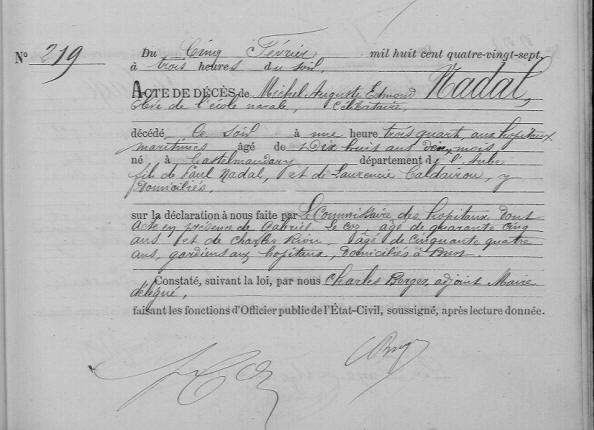 No 219
Du Cinq Février mil huit cent quatre-vingt-sept,
à trois heures du soir,
ACTE DE DÉCÈS de Michel Auguste Edmond Nadal,
élève de l'école navale, Célibataire,
décédé ce soir à une heure trois quart aux hopitaux
maritimes, âgé de Dix huit ans deux mois,
né à Castelnaudary département de l'Aude
fils de Paul Nadal, et de Laurencie Caldairou, y
Domiciliés.
sur la déclaration à nous faite par Le Commissaire des hopitaux dont
Acte en présence de Gabriel Le Coz, âgé de quarante cinq
ans et de Charles Riou, âgé de cinquante quatre
ans, gardiens aux hopitaux, Domiciliés à Brest.
Constaté, suivant la loi, par nous Charles Berger, adjoint Maire
délégué,
faisant les fonctions d'Officier public de l'État-Civil, soussigné, après lecture donnée.